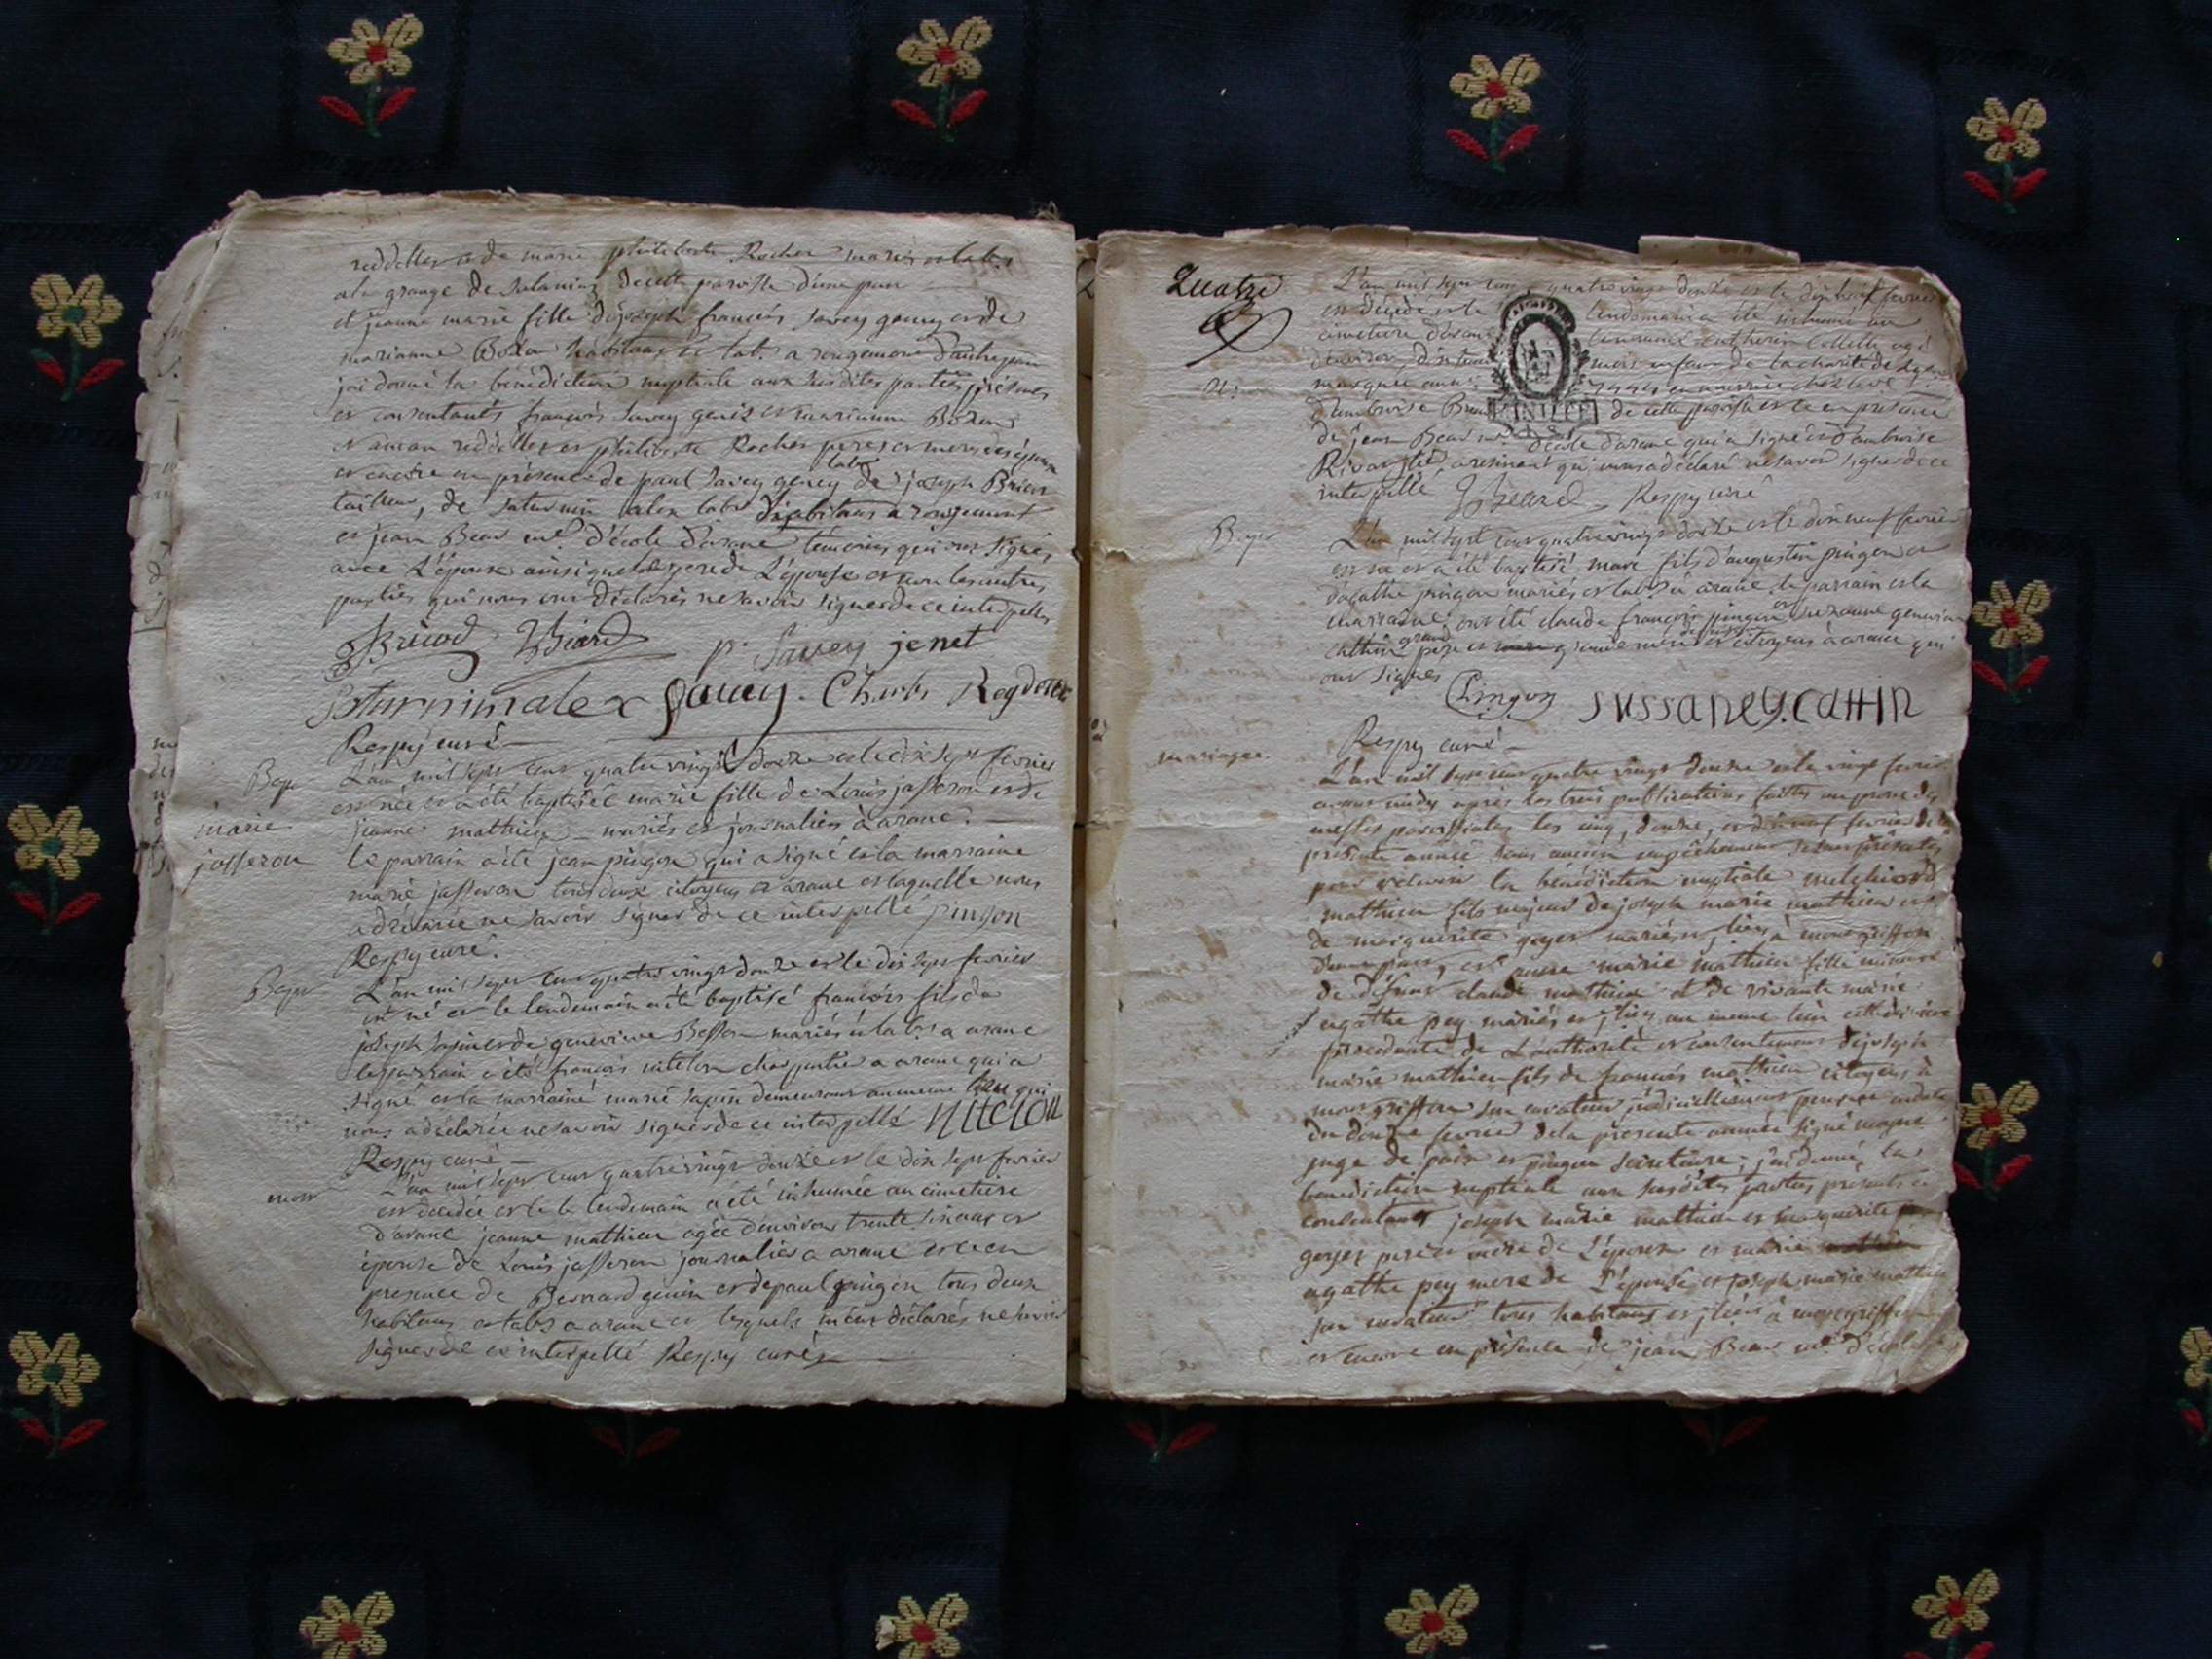 reddellet et de marie philiberte Rocher mariés et lab.
a la grange de dela paroisse d'une part
et jeanne marie fille de joseph francois savey gency et de
marianne Bozon habitans et lab. a rougemont d'autre part
j'ai donné la bénédiction nuptiale aux susdites parties présentes
et consentants francois savey et marianne Bozon
et reddellet et philiberte Rocher peres et meres des époux
et encore en présence de paul savey gency lab. de joseph Bricod
tailleur, de saturnin alex lab. habitans a rougemont
et jean Beard me. d'école d'arane témoins qui ont signés
avec L'épouse ainsi que le pere de L'épouse et non les autres
parties qui nous ont déclarés ne savoir signer de ce interpellés
JBricod JBeard p. Savey jenet
Saturninalex Savey. Charles Reydellet
Respy curé
Bapt L'an mil sept cent quatre vingt douze et le dix sept fevrier
est née et a été baptisée marie fille de Louis josseron et de
marie jeanne mathieu mariés et journaliers à arane.
josseron le parrain a été jean pingon qui a signé et la marraine
marie josseron tous deux citoyens a arane et laquelle nous
a declarée ne savoir signer de ce interpellé pingon
Respy curé.
Bapt L'an mil sept cent quatre vingt douze et le dix sept fevrier
est né et le lendemain a été baptisé francois fils de
joseph sapin et de genevieve Besson mariés et lab. a arane
le parrain a été francois niteton charpentier a arane qui a
signé et la marraine marie sapin demeurant au meme lieu qui
nous a déclarée ne savoir signer de ce interpellé niteton
Respy curé
mort L'an mil sept cent quatre vingt douze et le dix sept fevrier
est decedée et le lendemain a été inhumée au cimetiere
d'arane jeanne mathieu agée d'environ trente six ans et
épouse de Louis josseron journalier a arane et ce en
presence de Bernard genin et de paul pingon tous deux
habitans et lab. a arane et lesquels m'ont déclarés ne savoir
signer de ce interpellé Respy curé
Quatre
L'an mil sept cent quatre vingt douze et le dix huit fevrier
est décédé et le lendemain a été inhumé au
cimetiere d'arane Catherin Collette agé
d'environ mois enfant de la charité de Lyon
marquée en nourrice chez
d'ambroise de cette paroisse et ce en présence
de jean Beard me. d'école d'arane qui a signé et d'ambroise
qui nous a déclaré ne savoir signer de ce
interpellé JBeard Respy curé
Bapt L'an mil sept cent quatre vingt douze et le dix neuf fevrier
est né et a été baptisé marc fils d'augustin pingon et
d'agathe pingon mariés et lab. à arane. le parrain et la
marraine ont été claude francois pingon et suzanne genevieve
cattin grand pere et grande mere citoyens à arane qui
ont signés
Pingon SUSSANE.G.CATTIN
Respy curé
mariage. L'an mil sept cent quatre vingt douze et le vingt fevrier
avant midy après les trois publications faittes au prone des
messes paroissiales les cinq, douze, et dix neuf fevrier de la
présente année sans aucun empêchement se sont présentés
pour recevoir la bénédiction nuptiale melchiord
mathieu fils majeur de joseph marie mathieu et
de marguerite goyet mariés, à montgriffon
d'une part, et anne marie mathieu fille mineure
de défunt claude mathieu et de vivante marie
agathe pey mariés au meme lieu cette derniere
procedante de L'authorité et consentement de joseph
marie mathieu fils de francois mathieu citoyen à
montgriffon son curateur judiciellement en date
du douze fevrier de la presente année signé
juge de paix et pingon secretaire; j'ai donné la
benediction nuptiale aux susdites parties presentes et
consentants joseph marie mathieu et marguerite
goyet pere et mere de L'époux et marie
agathe pey mere de L'épouse et joseph marie mathieu
son curateur tous habitans à montgriffon
et encore en présence de jean Beard me. d'école